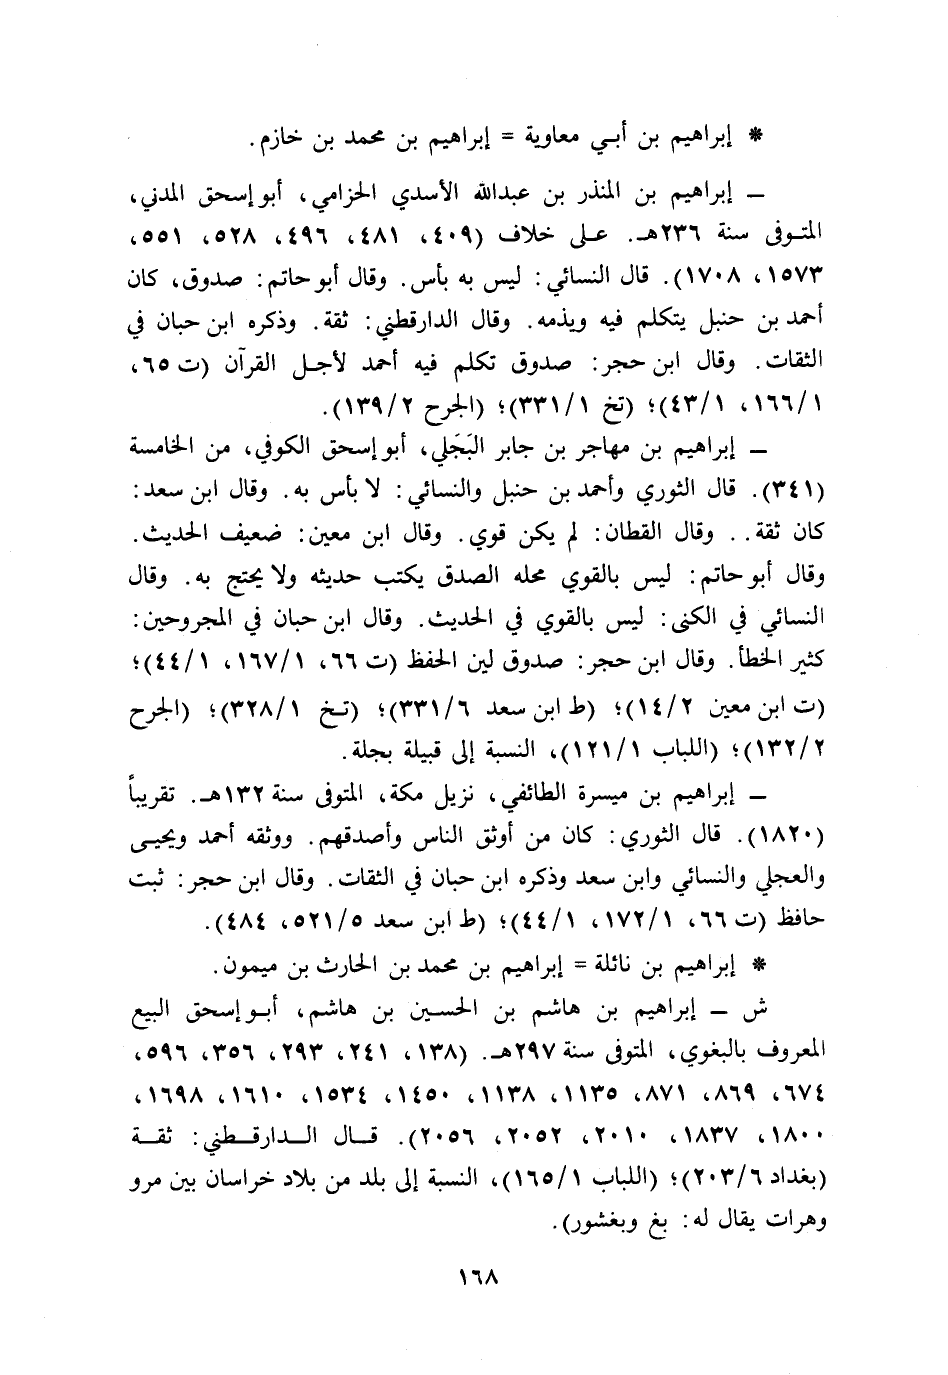 * إبراهيم بن أبي معاوية = إبراهيم بن محمد بن خازم.
ــ إبراهيم بن المنذر بن عبدالله الأسدي الحزامي، أبو إسحق المدني،
المتوفى سنة ٢٣٦هـ. على خلاف (٤٠٩، ٤٨١، ٤٩٦، ٥٢٨، ٥٥١،
١٥٧٣، ١٧٠٨). قال النسائي: ليس به بأس. وقال أبو حاتم: صدوق، كان
أحمد بن حنبل يتكلم فيه ويذمه. وقال الدارقطني: ثقة. وذكره ابن حبان في
الثقات. وقال ابن حجر: صدوق تكلم فيه أحمد لأجل القرآن (ت ٦٥،
١٦٦/١، ٤٣/١)؛ (تخ ٣٣١/١)؛ (الجرح ١٣٩/٢).
ــ إبراهيم بن مهاجر بن جابر البَجَلي، أبو إسحق الكوفي، من الخامسة
(٣٤١). قال الثوري وأحمد بن حنبل والنسائي: لا بأس به. وقال ابن سعد:
كان ثقة.. وقال القطان: لم يكن قوي. وقال ابن معين: ضعيف الحديث.
وقال أبو حاتم: ليس بالقوي محله الصدق يكتب حديثه ولا يحتج به. وقال
النسائي في الكنى: ليس بالقوي في الحديث. وقال ابن حبان في المجروحين:
كثير الخطأ. وقال ابن حجر: صدوق لين الحفظ (ت ٦٦، ١٦٧/١، ٤٤/١)؛
(ت ابن معين ١٤/٢)؛ (ط ابن سعد ٣٣١/٦)؛ (تخ ٣٢٨/١)؛ (الجرح
١٣٢/٢)؛ (اللباب ١٢١/١)، النسبة إلى قبيلة بجلة.
ــ إبراهيم بن ميسرة الطائفي، نزيل مكة، المتوفى سنة ١٣٢هـ. تقريباً
(١٨٢٠). قال الثوري: كان من أوثق الناس وأصدقهم. ووثقه أحمد ويحيى
والعجلي والنسائي وابن سعد وذكره ابن حبان في الثقات. وقال ابن حجر: ثبت
حافظ (ت ٦٦، ١٧٢/١، ٤٤/١)؛ (ط ابن سعد ٥٢١/٥، ٤٨٤).
* إبراهيم بن نائلة = إبراهيم بن محمد بن الحارث بن ميمون.
ش ــ إبراهيم بن هاشم بن الحسين بن هاشم، أبو إسحق البيع
المعروف بالبغوي، المتوفى سنة ٢٩٧هـ. (١٣٨، ٢٤١، ٢٩٣، ٣٥٦، ٥٩٦،
٦٧٤، ٨٦٩، ٨٧١، ١١٣٥، ١١٣٨، ١٤٥٠، ١٥٣٤، ١٦١٠، ١٦٩٨،
١٨٠٠، ١٨٣٧، ٢٠١٠، ٢٠٥٢، ٢٠٥٦). قال الدارقطني: ثقة
(بغداد ٢٠٣/٦)؛ (اللباب ١٦٥/١)، النسبة إلى بلد من بلاد خراسان بين مرو
وهرات يقال له: بغ وبغشور).
١٦٨